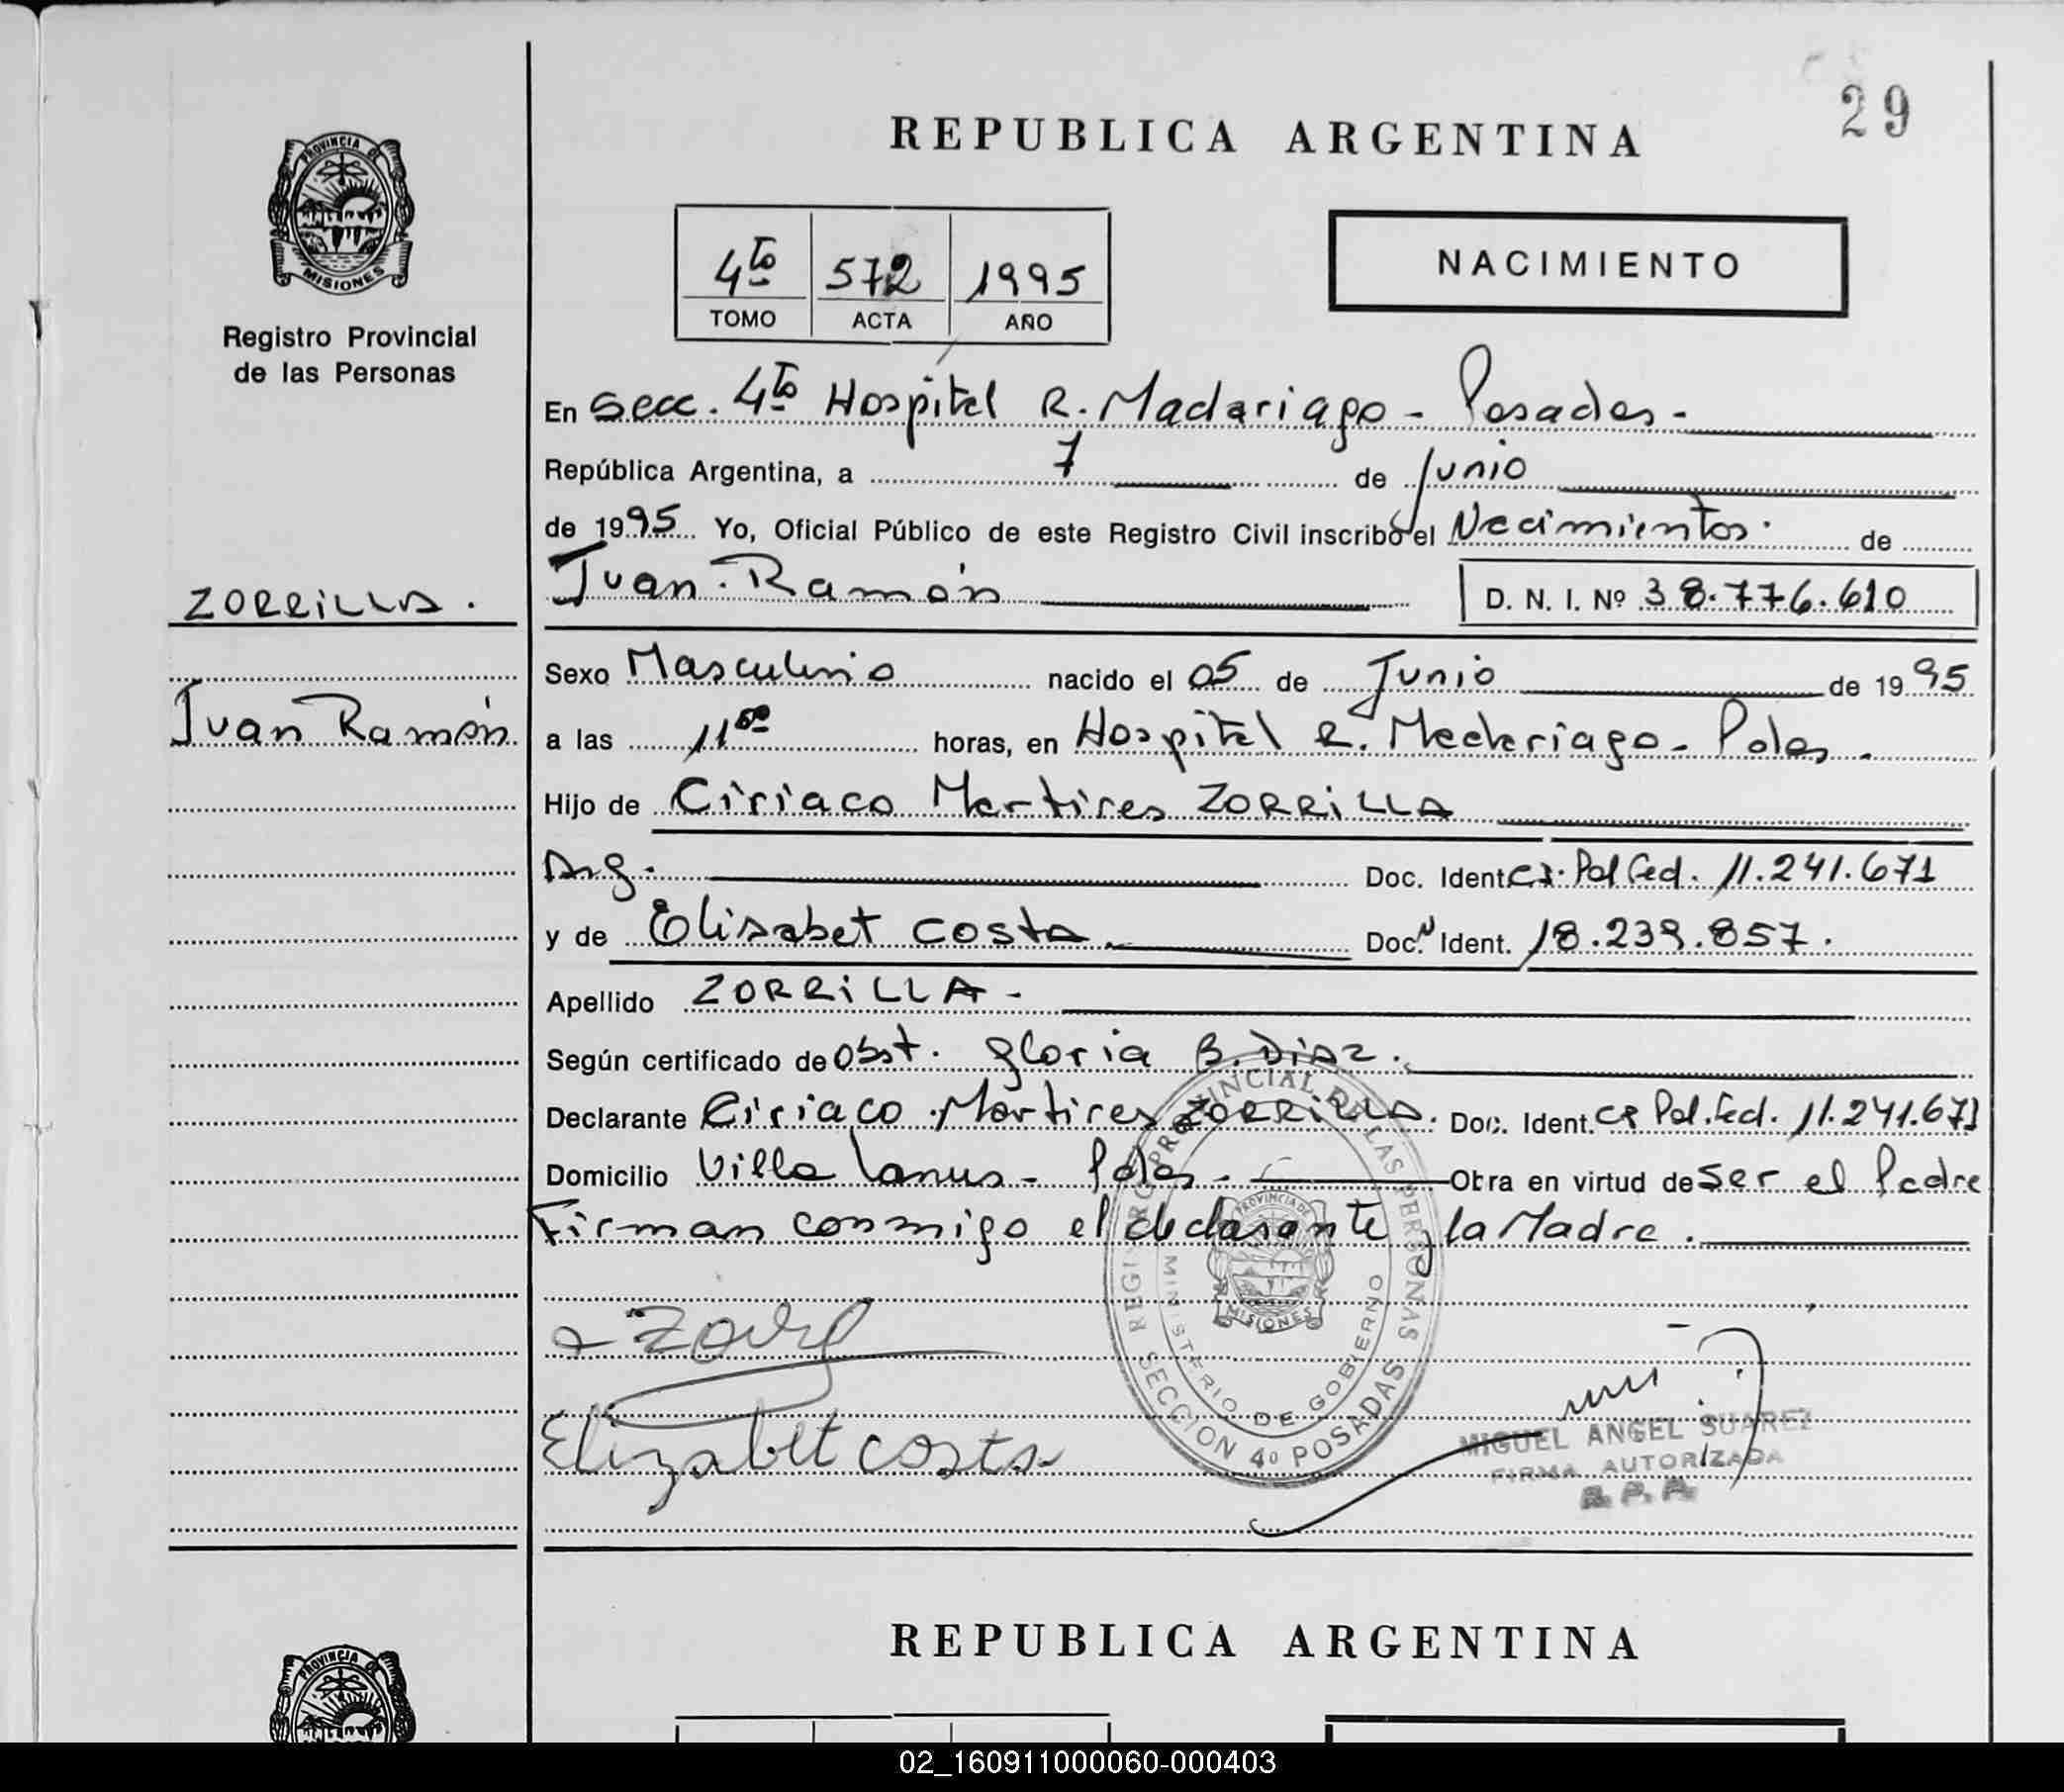 29
REPUBLICA ARGENTINA
PROVINCIA DE
MISIONES
Registro Provincial
de las Personas
4to 572 1995
TOMO ACTA AÑO
NACIMIENTO
En Secc. 4to Hospital R. Madariaga - Posadas -
República Argentina, a 7 de Junio
de 1995 Yo, Oficial Público de este Registro Civil inscribo el Nacimientos. de
Juan Ramón D. N. I. Nº 38.776.610
ZORRILLA.
Juan Ramón
Sexo Masculino nacido el 05 de Junio de 1995
a las 11 horas, en Hospital R. Madariaga - Pdas -
Hijo de Ciriaco Martires ZORRILLA
Arg. Doc. Ident. CI. Pol Fed. 11.241.671
y de Elisabet COSTA. Doc. Ident. 18.239.857.
Apellido ZORRILLA -
Según certificado de Obst. Gloria B. Diaz.
Declarante Ciriaco Martires ZORRILLA. Doc. Ident. CI Pol. Fed. 11.241.671
Domicilio Villa Lanus - Pdas - Obra en virtud de ser el Padre
Firman conmigo el declarante y la Madre.
REGISTRO PROVINCIAL DE LAS PERSONAS
MINISTERIO DE GOBIERNO
PROVINCIA DE
MISIONES
SECCION 4º POSADAS
Elizabet costa
MIGUEL ANGEL SUAREZ
FIRMA AUTORIZADA
R. P. P.
REPUBLICA ARGENTINA
PROVINCIA DE
02_160911000060-000403